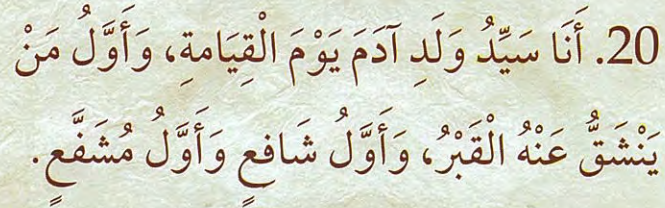 20. أَنَا سَيِّدُ وَلَدِ آدَمَ يَوْمَ الْقِيَامةِ، وَأَوَّلُ مَنْ
يَنْشَقُّ عَنْهُ الْقَبْرُ، وَأَوَّلُ شَافعٍ وَأَوَّلُ مُشَفَّعٍ.